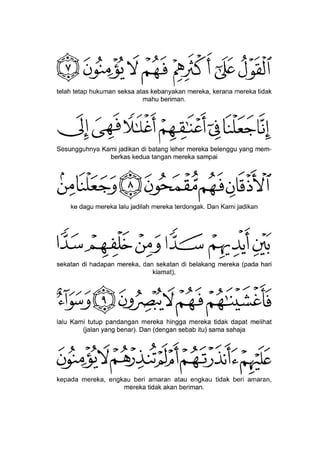 ٱلْقَوْلُ عَلَىٰٓ أَكْثَرِهِمْ فَهُمْ لَا يُؤْمِنُونَ ٧
telah tetap hukuman seksa atas kebanyakan mereka, kerana mereka tidak
mahu beriman.
إِنَّا جَعَلْنَا فِىٓ أَعْنَـٰقِهِمْ أَغْلَـٰلًا فَهِىَ إِلَى
Sesungguhnya Kami jadikan di batang leher mereka belenggu yang mem-
berkas kedua tangan mereka sampai
ٱلْأَذْقَانِ فَهُم مُّقْمَحُونَ ٨ وَجَعَلْنَا مِنۢ
ke dagu mereka lalu jadilah mereka terdongak. Dan Kami jadikan
بَيْنِ أَيْدِيهِمْ سَدًّا وَمِنْ خَلْفِهِمْ سَدًّا
sekatan di hadapan mereka, dan sekatan di belakang mereka (pada hari
kiamat),
فَأَغْشَيْنَـٰهُمْ فَهُمْ لَا يُبْصِرُونَ ٩ وَسَوَآءٌ
lalu Kami tutup pandangan mereka hingga mereka tidak dapat melihat
(jalan yang benar). Dan (dengan sebab itu) sama sahaja
عَلَيْهِمْ ءَأَنذَرْتَهُمْ أَمْ لَمْ تُنذِرْهُمْ لَا يُؤْمِنُونَ
kepada mereka, engkau beri amaran atau engkau tidak beri amaran,
mereka tidak akan beriman.